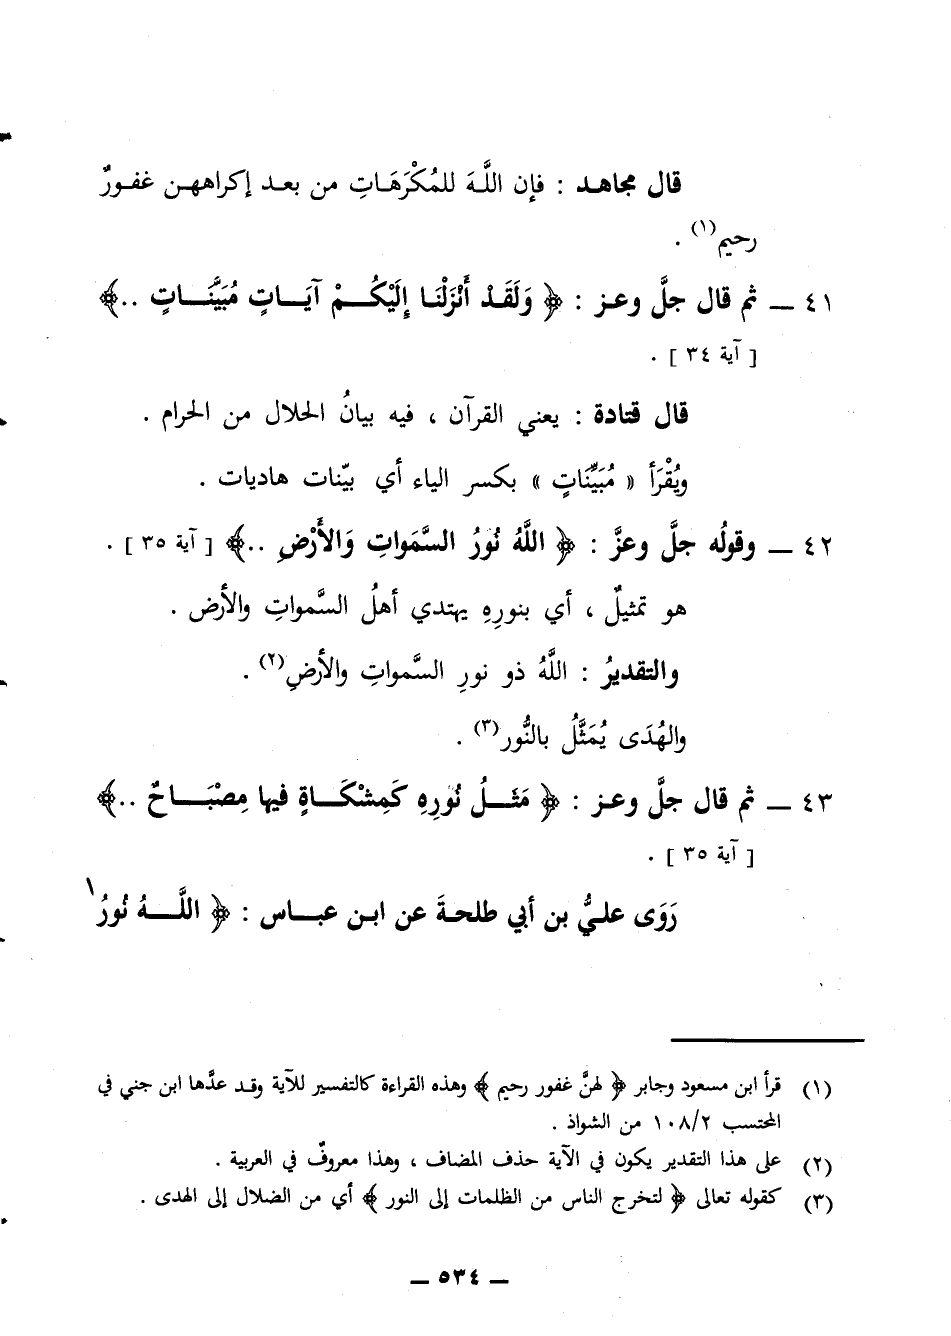 قال مجاهد : فإن اللَّهَ للمُكْرَهَاتِ من بعد إكراههن غفورٌ
رحيم(١) .
٤١ ـ ثم قال جلَّ وعز : ﴿ وَلَقَدْ أَنْزَلْنَا إِلَيْكُمْ آيَاتٍ مُبَيَّنَاتٍ ..﴾
[ آية ٣٤ ] .
قال قتادة : يعني القرآن ، فيه بيانُ الحلال من الحرام .
ويُقْرَأ « مُبَيِّنَاتٍ » بكسر الياء أي بيّنات هاديات .
٤٢ ـ وقولُه جلَّ وعزَّ : ﴿ اللَّهُ نُورُ السَّمَواتِ وَالأَرْضِ ..﴾ [ آية ٣٥ ] .
هو تمثيلٌ ، أي بنورِهِ يهتدي أهلُ السَّمواتِ والأرض .
والتقديرُ : اللَّهُ ذو نورِ السَّمواتِ والأرضِ(٢) .
والهُدَى يُمَثَّلُ بالنُّور(٣) .
٤٣ ـ ثم قال جلَّ وعز : ﴿ مَثَلُ نُورِهِ كَمِشْكَاةٍ فيها مِصْبَاحٌ ..﴾
[ آية ٣٥ ] .
رَوَى عليُّ بن أبي طلحةَ عن ابن عباس : ﴿ اللَّهُ نُورُ
(١) قرأ ابن مسعود وجابر ﴿ لهنَّ غفور رحيم ﴾ وهذه القراءة كالتفسير للآية وقد عدَّها ابن جني في
المحتسب ١٠٨/٢ من الشواذ .
(٢) على هذا التقدير يكون في الآية حذف المضاف ، وهذا معروفٌ في العربية .
(٣) كقوله تعالى ﴿ لتخرج الناس من الظلمات إلى النور ﴾ أي من الضلال إلى الهدى .
ـ ٥٣٤ ـ